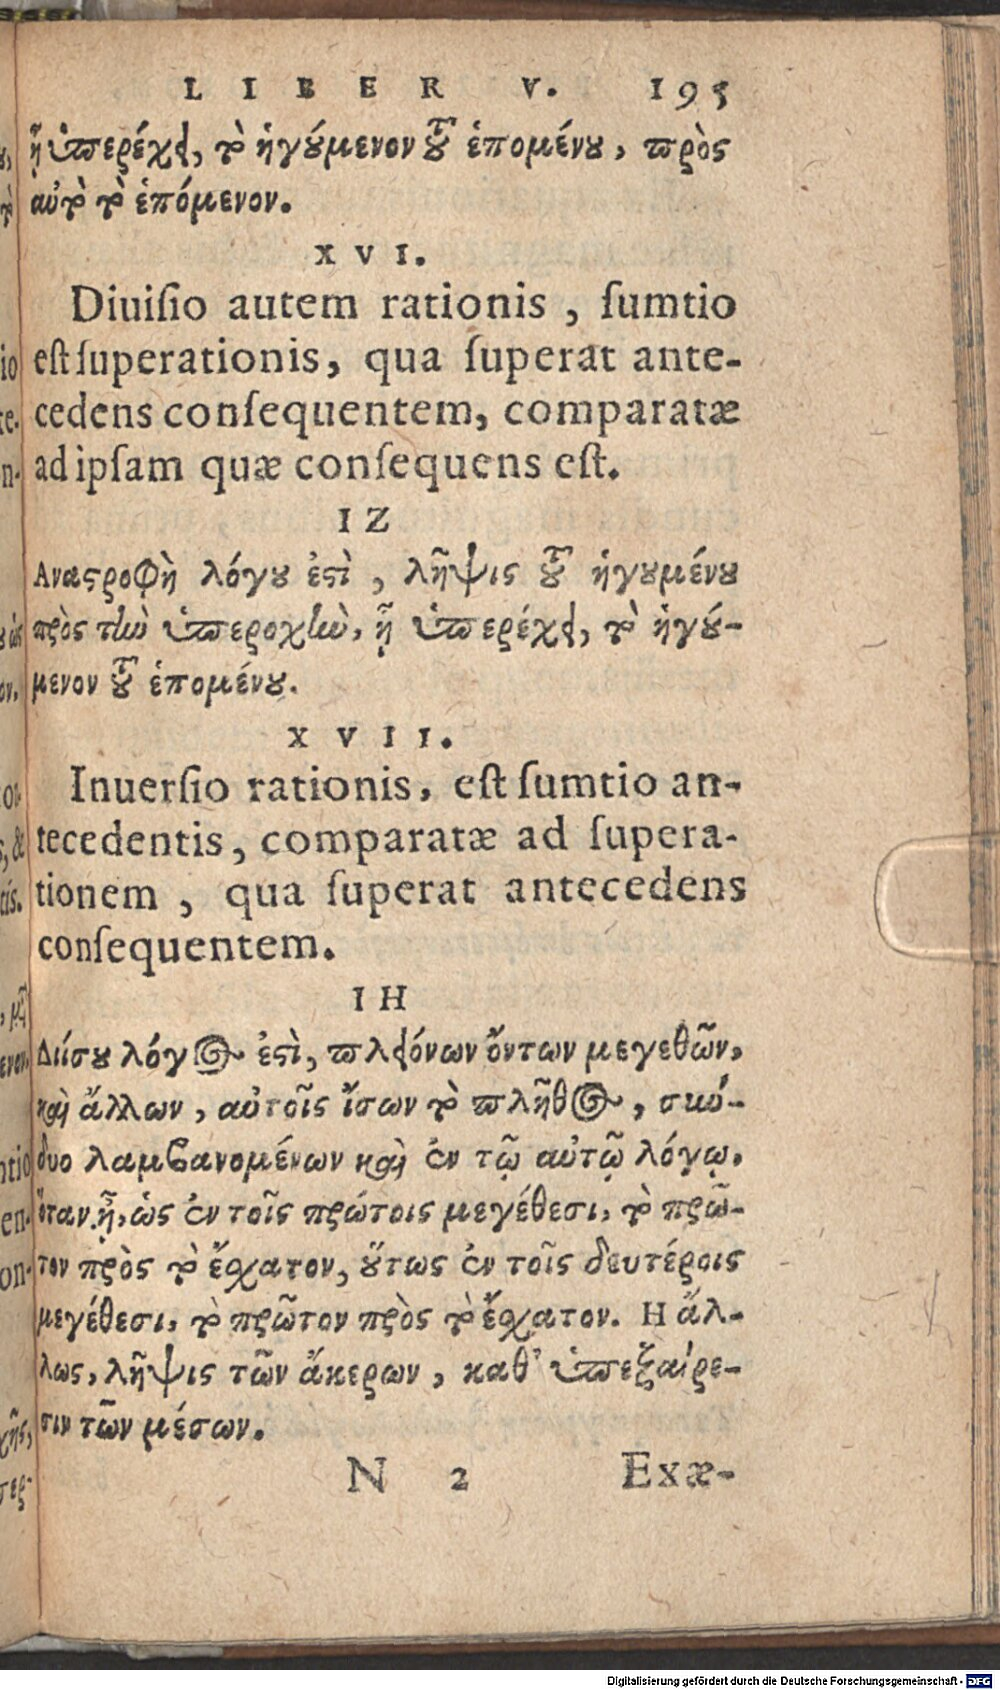 LIBER V. 195
ᾗ ὑπερέχει, τὸ ἡγούμενον τοῦ ἑπομένου, πρὸς
αὐτὸ τὸ ἑπόμενον.
XVI.
Diuiſio autem rationis, ſumtio
eſt ſuperationis, qua ſuperat ante-
cedens conſequentem, comparatæ
ad ipſam quæ conſequens eſt.
ΙΖ
Αναστροφὴ λόγου ἐστὶ, λῆψις τοῦ ἡγουμένου
πρὸς τὴν ὑπεροχὴν, ᾗ ὑπερέχει, τὸ ἡγού-
μενον τοῦ ἑπομένου.
XVII.
Inuerſio rationis, eſt ſumtio an-
tecedentis, comparatæ ad ſupera-
tionem, qua ſuperat antecedens
conſequentem.
ΙΗ
Διίσου λόγος ἐστὶ, πλειόνων ὄντων μεγεθῶν,
καὶ ἄλλων, αὐτοῖς ἴσων τὸ πλῆθος, σκύ-
δυο λαμβανομένων καὶ ἐν τῷ αὐτῷ λόγῳ.
ὅταν ᾖ, ὡς ἐν τοῖς πρώτοις μεγέθεσι, τὸ πρῶ-
τον πρὸς τὸ ἔσχατον, οὕτως ἐν τοῖς δευτέροις
μεγέθεσι, τὸ πρῶτον πρὸς τὸ ἔσχατον. Η ἄλ-
λως, λῆψις τῶν ἄκρων, καθ' ὑπεξαίρε-
σιν τῶν μέσων.
N 2 Exæ-
Digitalisierung gefördert durch die Deutsche Forschungsgemeinschaft - DFG